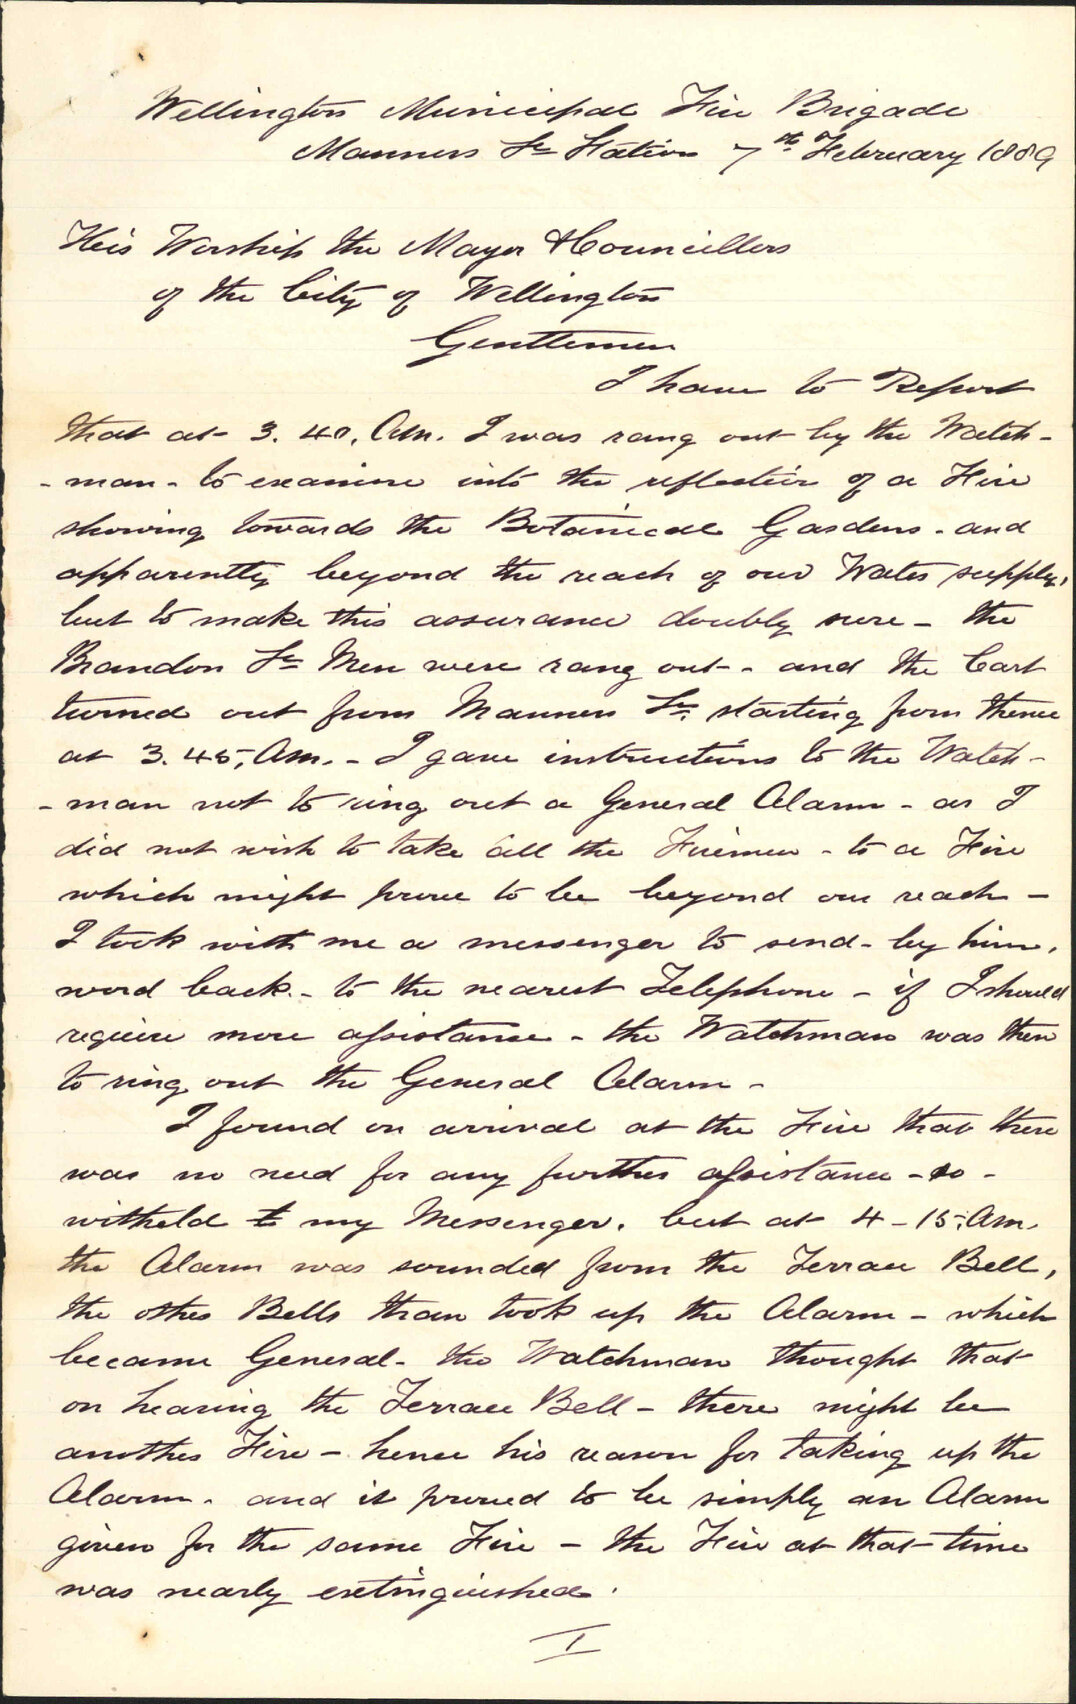 Wellington Municipal Fire Brigade
Manners St Station 7th February 1889
His Worship the Mayor & Councillors
of the City of Wellington
Gentlemen
I have to Report
that at 3.40, Am. I was rang out by the Watch-
-man - to examine into the reflection of a Fire
showing towards the Botanical Gardens - and
apparently beyond the reach of our Water supply,
but to make this assurance doubly sure - the
Brandon St Men were rang out - and the Cart
turned out from Manners St, starting from thence
at 3.45, Am. - I gave instructions to the Watch-
-man not to ring out a General Alarm - as I
did not wish to take all the Firemen - to a Fire
which might prove to be beyond our reach -
I took with me a messenger to send - by him,
word back - to the nearest Telephone - if I should
require more assistance - the Watchman was then
to ring out the General Alarm -
I found on arrival at the Fire that there
was no need for any further assistance - so -
witheld my Messenger, but at 4-15, Am.
the Alarm was sounded from the Terrace Bell,
the other Bells than took up the Alarm - which
became General - the Watchman thought that
on hearing the Terrace Bell - there might be
another Fire - hence his reason for taking up the
Alarm - and it proved to be simply an Alarm
given for the same Fire - the Fire at that time
was nearly extinguished.
I